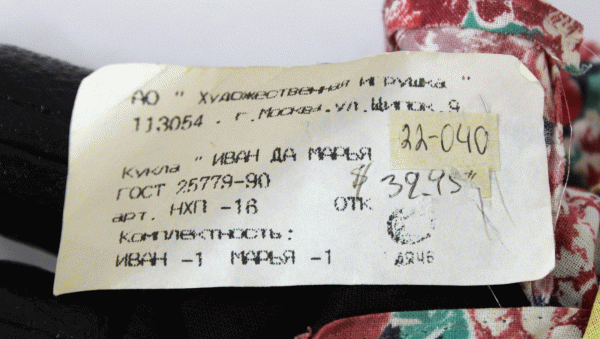 АО " Художественная игрушка "
113054 . г.Москва.ул.Щипок.9
22-040
Кукла " ИВАН ДА МАРЬЯ
ГОСТ 25779-90
$ 39.95
арт. НХП -16 ОТК
Комплектность:
ИВАН -1 МАРЬЯ -1